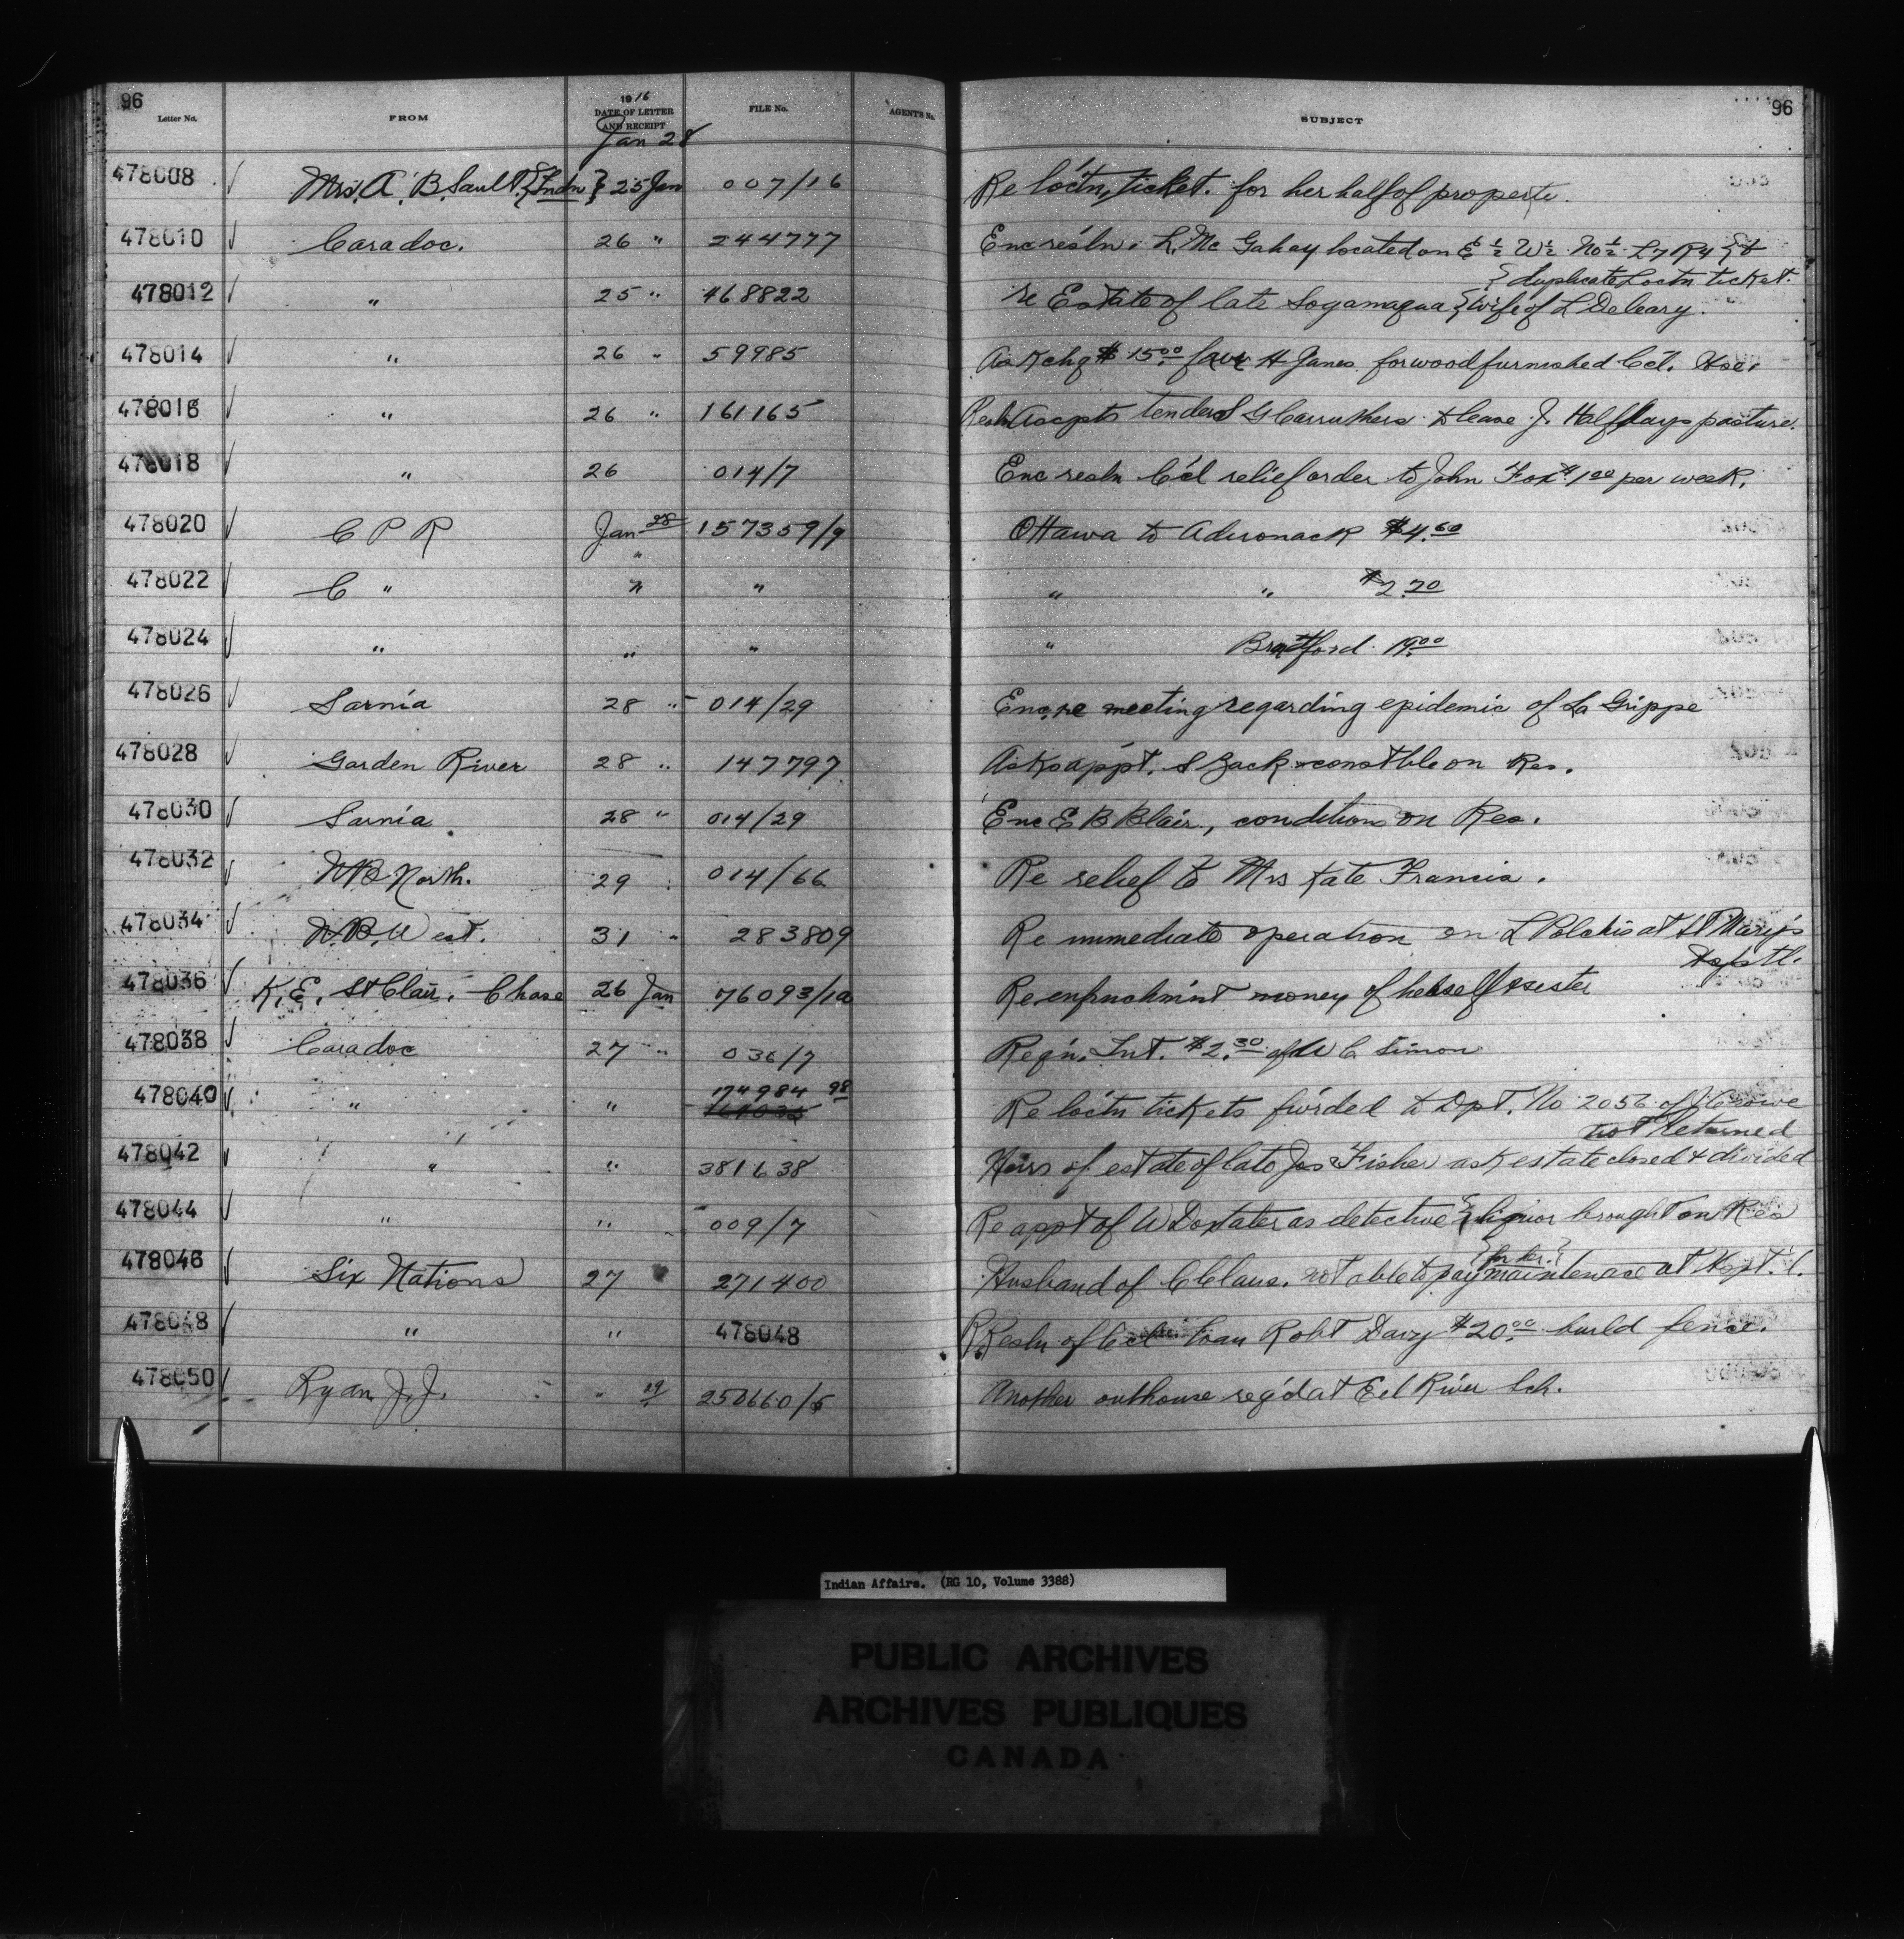 96
96
Letter No. FROM 1916 DATE OF LETTER AND RECEIPT FILE No. AGENT'S No. SUBJECT
Jan 28
478008 Mrs. A. B. Sault. {Indn} 25 Jan 007/16 Re loc'tn, ticket. for her half of property.
478010 Caradoc. 26 " 244777 Enc res'ln. L. Mc Gahay located on E ½ W ½ No ½ L7 R4 } &
{ duplicate Loctn ticket.
478012 " 25 " 468822 re Estate of late Sogamaqua { wife of L Deleary.
478014 " 26 " 59985 Ask chq $15.00 favr H Janes for wood furnished C'cl. Hse.
478016 " 26 " 161165 Resln Accpts tender S G Carruthers to lease J. Halfdays pasture.
478018 " 26 014/7 Enc resln C'cl relief order to John Fox $1.00 per week.
478020 C P R Jan 28 157359/9 Ottawa to Adironack $4.60
478022 C " " " " " $2.20
478024 " " " " Brantford 19.00
478026 Sarnia 28 " 014/29 Enc re meeting regarding epidemic of La Grippe
478028 Garden River 28 " 147797 Asks app't. S Zack constble on Res.
478030 Sarnia 28 " 014/29 Enc E B Blair, conditions on Res.
478032 N B North. 29 014/66 Re relief to Mrs Kate Francis.
478034 N. B. West. 31 " 283809 Re immediate operation on L Polchis at St Mary's
Hsptl.
478036 K. E. St Clair. Chase 26 Jan 76093/1a Re enfrnchm'nt money of herself & sister
478038 Caradoc 27 " 036/7 Req'n. Int. $2.30 of W C Simon
478040 " " 174984 98 Re loc'tn tickets fw'rded to Dpt. No 2056 of
not returned
478042 " " 381638 Heirs of estate of late Jas Fisher ask estate closed & divided
478044 " " 009/7 Re appt of W Doxtater as detective { liquor brought on Res
478046 Six Nations 27 271400 Husband of C Claus. not able to pay {for her} maintenance at Hspt'l.
478048 " " 478048 Resln of Ccl loan Robt Davy $20.00 build fence.
478050 Ryan J. J. " 29 250660/5 Another outhouse req'd at Eel River Sch.
Indian Affairs. (RG 10, Volume 3388)
PUBLIC ARCHIVES
ARCHIVES PUBLIQUES
CANADA